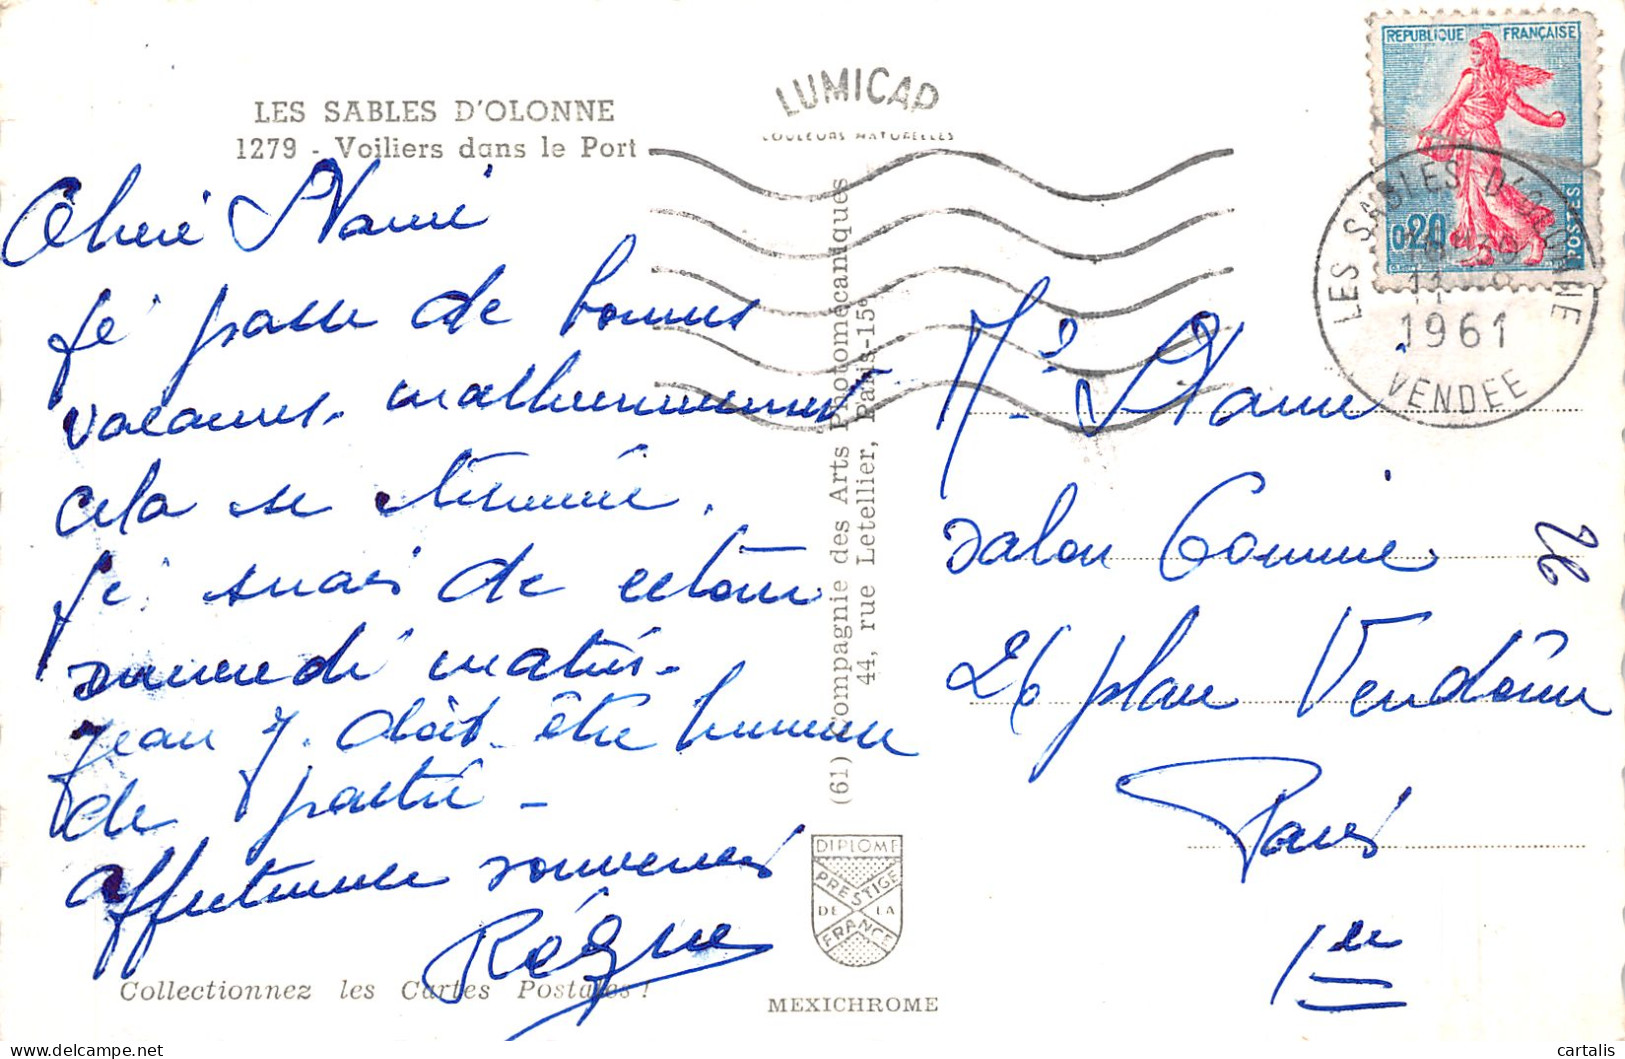 LES SABLES D'OLONNE
1279 - Voiliers dans le Port
LUMICAP
COULEURS NATURELLES
REPUBLIQUE FRANÇAISE
0,20
POSTES
LES SABLES D'OLONNE
1961
VENDEE
je passe de bonnes
vacances. malheureusement
cela se termine.
je serais de retour
samedi matin.
Jean J. doit être heureux
de partir -
affectueux souvenirs
Régine
(61) Compagnie des Arts Photomécaniques
44, rue Letellier, Paris-15e
salon
26 place Vendôme
Paris
1er
DIPLOME
PRESTIGE
DE LA
FRANCE
Collectionnez les Cartes Postales!
MEXICHROME
delcampe.net
cartalis